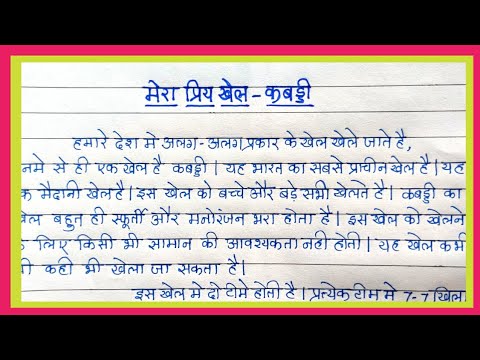 मेरा प्रिय खेल - कबड्डी
हमारे देश मे अलग-अलग प्रकार के खेल खेले जाते है,
नमे से ही एक खेल है कबड्डी | यह भारत का सबसे प्राचीन खेल है | यह
क मैदानी खेल है | इस खेल को बच्चे और बड़े सभी खेलते है | कबड्डी का
बहुत ही स्फूर्ती और मनोरंजन भरा होता है | इस खेल को खेलने
लिए किसी भी सामान की आवश्यकता नही होती | यह खेल कभी
कही भी खेला जा सकता है |
इस खेल मे दो टीमे होती है | प्रत्येक टीम मे 7-7 खिला